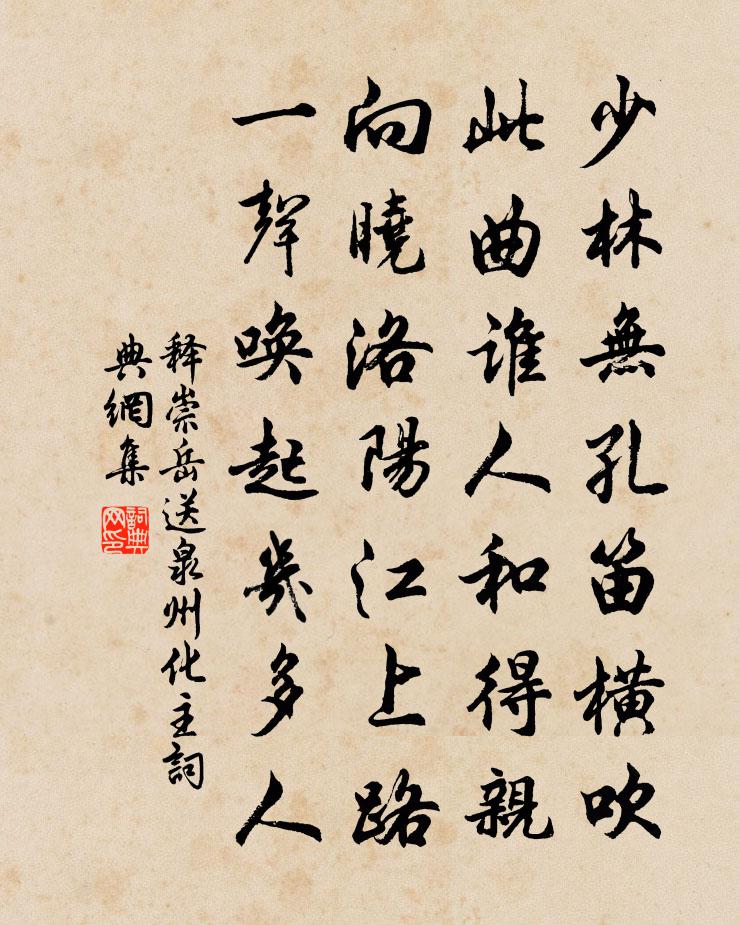 少林無孔笛橫吹
此曲誰人和得親
向曉洛陽江上路
一聲喚起幾多人
釋崇岳送泉州化主詞
典網集
詞典
网印